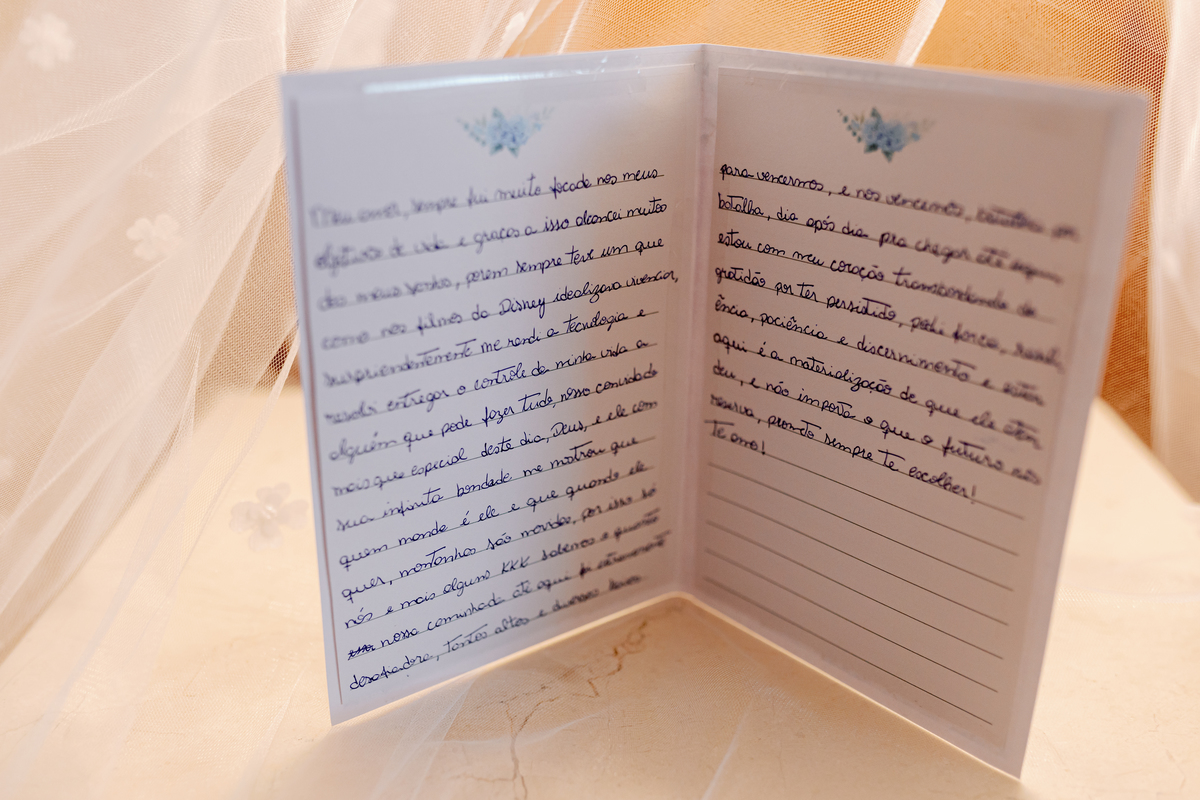 Meu amor, sempre fui muito focada nos meus
objetivos de vida e graças a isso alcancei muitos
dos meus sonhos, porem sempre teve um que
como nos filmes da Disney idealizava vivenciar,
surpriendentemente me rendi a tecnologia e
resolvi entregar o controle da minha vida a
Alguém que pode fazer tudo, nosso convidado
mais que especial deste dia, Deus, e ele com
sua infinita bondade me mostrou que
quem manda é ele e que quando ele
quer, montanhas são movidas, por isso só
nós e mais alguns KKK sabemos o quanto
nossa caminhada até aqui foi extremamente
desafiadora, tantos altos e diversos baixos
para vencermos, e nós vencemos, batalha por
batalha, dia após dia pra chegar até aqui
estou com meu coração transbordando de
gratidão por ter persistido, pedi força,
ência, paciência e discernimento e estar
aqui é a materialização de que ele
deu, e não importa o que o futuro nos
reserva, prometo sempre te escolher!
Te amo!